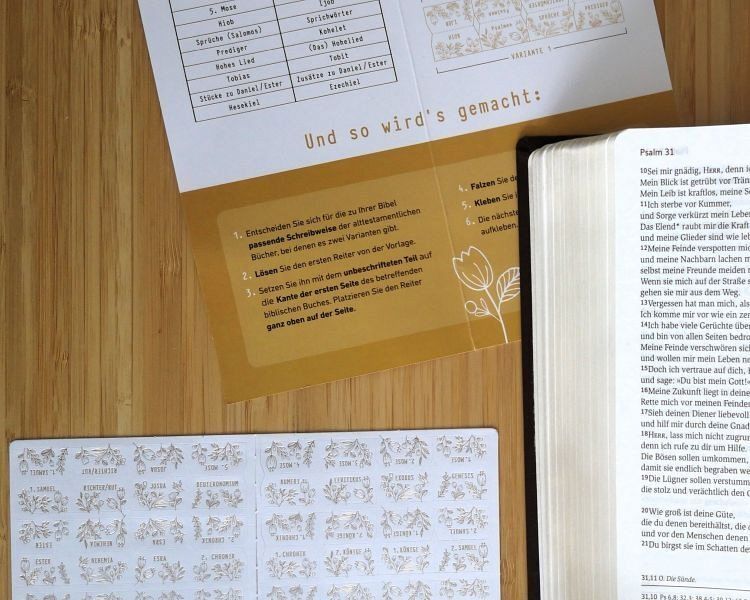 5. Mose
Hiob Ijob
Sprüche (Salomos) Sprichwörter
Prediger Kohelet
Hohes Lied (Das) Hohelied
Tobias Tobit
Stücke zu Daniel/Ester Zusätze zu Daniel/Ester
Hesekiel Ezechiel
HIOB Psalmen SPRÜCHE PREDIGER
VARIANTE 1
Und so wird's gemacht:
1. Entscheiden Sie sich für die zu Ihrer Bibel
passende Schreibweise der alttestamentlichen
Bücher, bei denen es zwei Varianten gibt.
2. Lösen Sie den ersten Reiter von der Vorlage.
3. Setzen Sie ihn mit dem unbeschrifteten Teil auf
die Kante der ersten Seite des betreffenden
biblischen Buches. Platzieren Sie den Reiter
ganz oben auf der Seite.
4. Falzen Sie
5. Kleben Sie
6. Die nächste
aufkleben.
Psalm 31
10Sei mir gnädig, HERR, denn
Mein Blick ist getrübt vor
Mein Leib ist kraftlos, meine
11Ich sterbe vor Kummer,
und Sorge verkürzt mein
Das Elend* raubt mir die
und meine Glieder sind wie
12Meine Feinde verspotten
und meine Nachbarn lachen
selbst meine Freunde meiden
Wenn sie mich auf der Straße
gehen sie mir aus dem Weg.
13Vergessen hat man mich,
Ich komme mir vor wie ein
14Ich habe viele Gerüchte
und bin von allen Seiten
Meine Feinde verschwören
und wollen mir mein Leben
15Doch ich vertraue auf dich,
und sage: »Du bist mein Gott!«
16Meine Zukunft liegt in
Rette mich vor meinen
17Sieh deinen Diener liebevoll
und hilf mir durch deine
18HERR, lass mich nicht
denn ich rufe zu dir um Hilfe.
Die Bösen sollen umkommen,
damit sie endlich begraben
19Die Lügner sollen
die stolz und verächtlich den
20Wie groß ist deine Güte,
die du denen bereithältst, die
und vor den Menschen denen
21Du birgst sie im Schatten
31,11 O. Die Sünde.
31,10 Ps 6,8; 32,3; 38,4-5;
1. SAMUEL RICHTER/RUT JOSUA 5. MOSE 4. MOSE 3. MOSE 2. MOSE 1. MOSE
1. SAMUEL RICHTER/RUT JOSUA DEUTERONOMIUM NUMERI LEVITIKUS EXODUS GENESIS
ESTER NEHEMIA ESRA 2. CHRONIK 1. CHRONIK 2. KÖNIGE 1. KÖNIGE 2. SAMUEL
ESTER NEHEMIA ESRA 2. CHRONIK 1. CHRONIK 2. KÖNIGE 1. KÖNIGE 2. SAMUEL